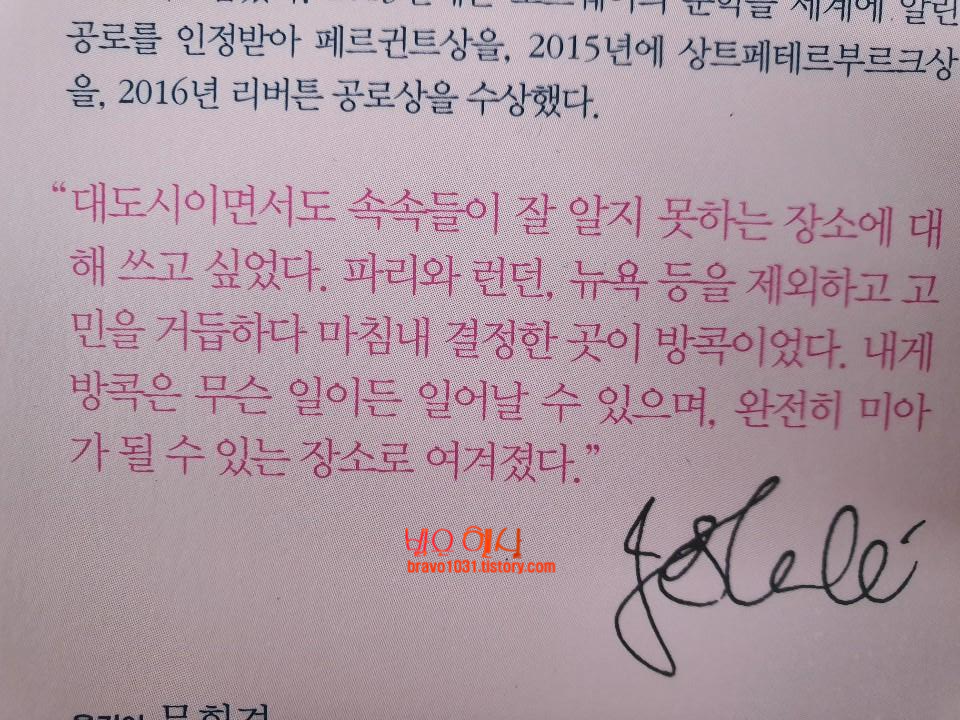 문학을 세계에 알린
공로를 인정받아 페르귄트상을, 2015년에 상트페테르부르크상
을, 2016년 리버튼 공로상을 수상했다.
“대도시이면서도 속속들이 잘 알지 못하는 장소에 대
해 쓰고 싶었다. 파리와 런던, 뉴욕 등을 제외하고 고
민을 거듭하다 마침내 결정한 곳이 방콕이었다. 내게
방콕은 무슨 일이든 일어날 수 있으며, 완전히 미아
가 될 수 있는 장소로 여겨졌다.”
bravo1031.tistory.com